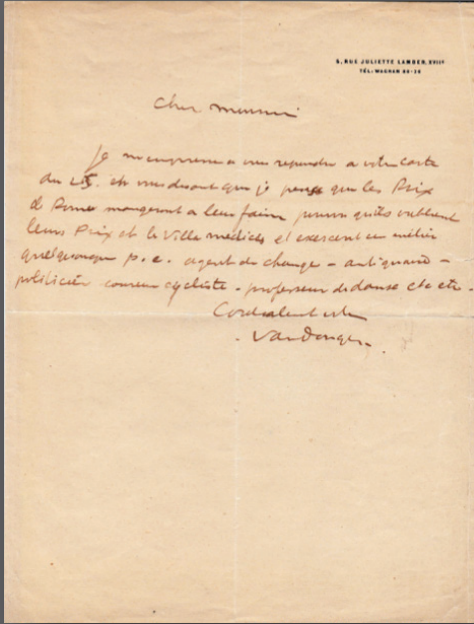 5, RUE JULIETTE LAMBER, XVIIᵉ
TÉL: WAGRAM
Cher monsieur
Je m'empresse a vous repondre a votre carte
du en vous disant que je pense que les Prix
de Rome mangeront a leur faim pourvu qu'ils oublient
leurs Prix et la Villa medicis et exercent un métier
quelquonque p.e. agent de change – antiquaire –
politicien coureur cycliste – professeur de danse etc etc –
Cordialement votre
– van Dongen –